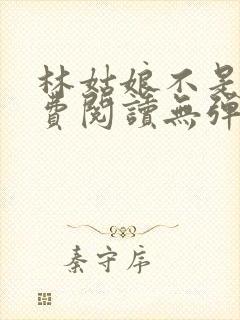 林姑娘不是
費閱讀無彈
秦守序